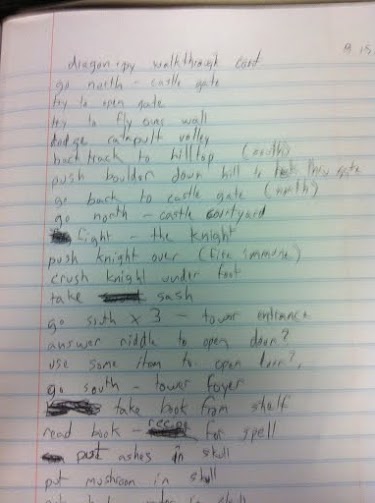 9 15
dragon.ipy walkthrough cont
go north - castle gate
try to open gate
try to fly over wall
dodge catapult volley
back track to hilltop (south)
push boulder down hill to break thru gate
go back to castle gate (north)
go north - castle courtyard
fight - the knight
push knight over (fire immune)
crush knight under foot
take sash
go south x 3 - tower entrance
answer riddle to open door?
use some item to open door?
go south - tower foyer
take book from shelf
read book - for spell
put ashes in skull
put mushroom in skull